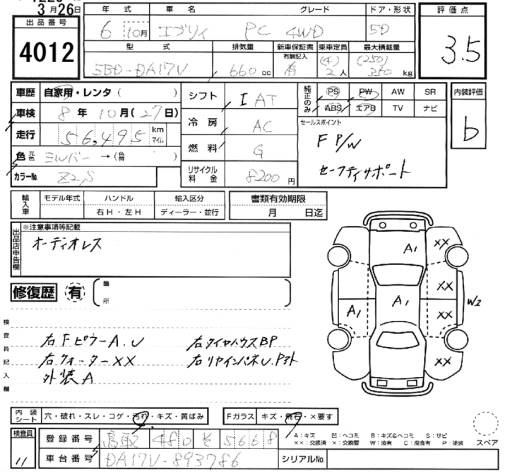 3月26日
出品番号
4012
年式 車名 グレード ドア・形状
6 10月 エブリィ PC 4WD 5D
型式 排気量 新車保証書 有効記入 乗車定員 最大積載量
5BD-DA17V 660cc 有 (4) 2人 (250) 350kg
評価点
3.5
車歴 自家用・レンタ( )
車検 8年10月(27日)
走行 56,495 km マイル
色 元色 シルバー →( 替 )
カラーNo Z2S
シフト IAT
冷房 AC
燃料 G
リサイクル料金 8200円
純正のみ PS PW AW SR
ABS エアB TV ナビ
セールスポイント
F P/W
セーフティサポート
内装評価
b
輸入車 モデル年式 ハンドル 輸入区分
右H・左H ディーラー・並行
書類有効期限
月 日迄
出品店申告欄
※注意事項等記載
オーディオレス
修復歴 有 ( 箇所 )
検査員記入欄
右FピラーA、U 右タイヤハウスBP
右クォーターXX 右リヤインパネU、P
外装A
A1 XX
XX
A1 A1 W2
XX
XX
内装シート 穴・破れ・スレ・コゲ・汚れ・キズ・黄ばみ
Fガラス キズ・飛石・×要す
A:キズ U:ヘコミ B:キズ&ヘコミ S:サビ
××:交換済 ×:要交換 W:波有 C:腐食有 P:塗装
スペア
検査員
11
登録番号 鳥取 480 を 5668
車台番号 DA17V-893786
シリアルNo.